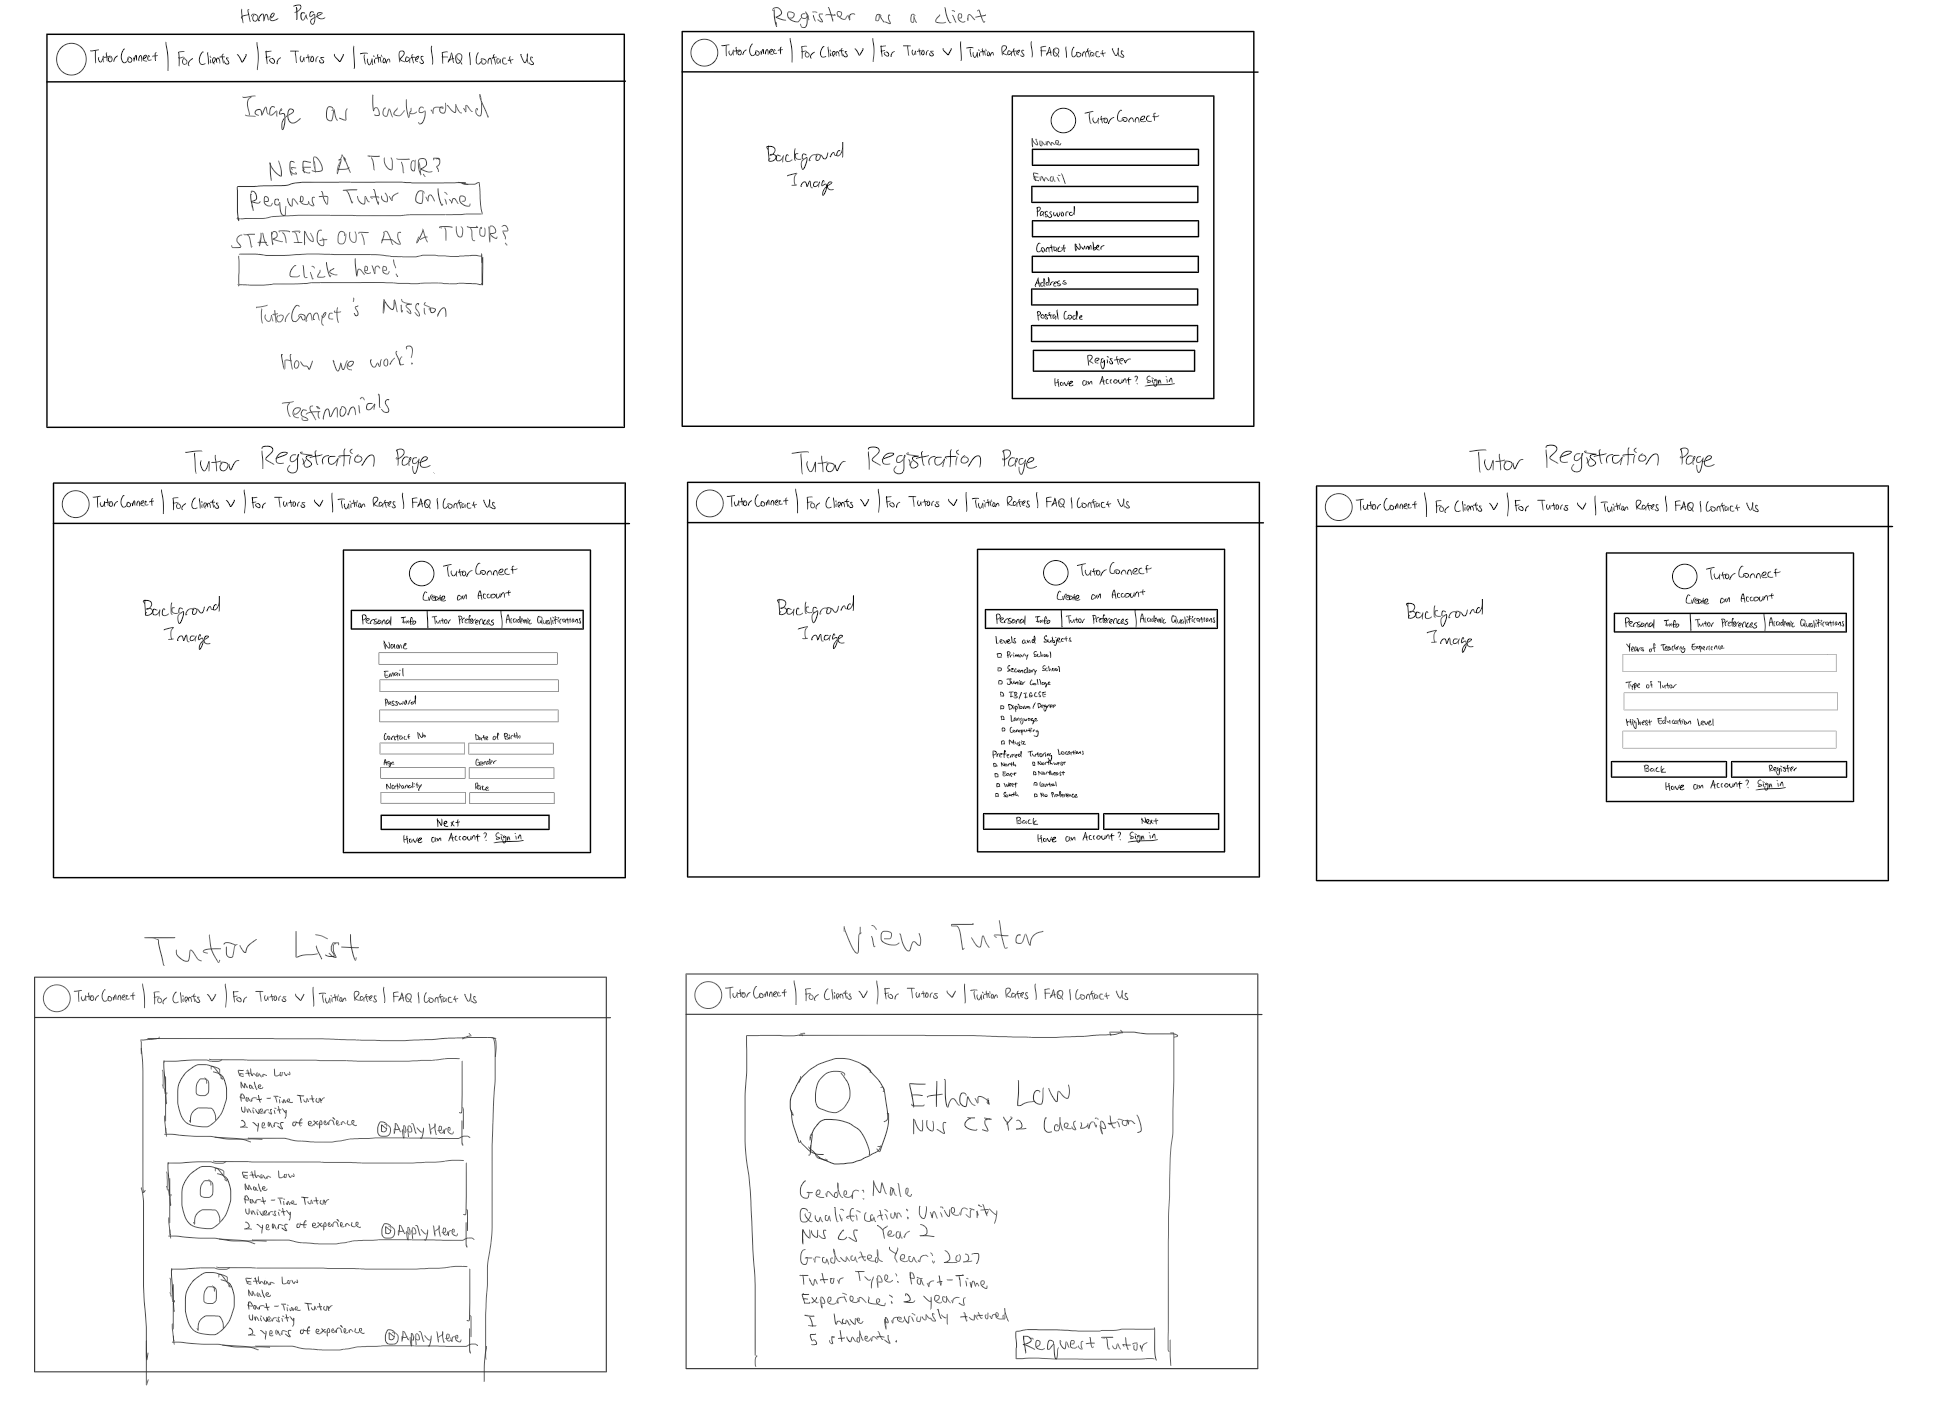 Home Page
TutorConnect | For Clients V | For Tutors V | Tuition Rates | FAQ | Contact Us
Image as background
NEED A TUTOR?
Request Tutor Online
STARTING OUT AS A TUTOR?
Click here!
TutorConnect's Mission
How we work?
Testimonials
Register as a client
TutorConnect | For Clients V | For Tutors V | Tuition Rates | FAQ | Contact Us
Background
Image
TutorConnect
Name
Email
Password
Contact Number
Address
Postal Code
Register
Have an Account? Sign in
Tutor Registration Page
TutorConnect | For Clients V | For Tutors V | Tuition Rates | FAQ | Contact Us
Background
Image
TutorConnect
Create an Account
Personal Info | Tutor Preferences | Academic Qualifications
Name
Email
Password
Contact No Date of Birth
Age Gender
Nationality Race
Next
Have an Account? Sign in
Tutor Registration Page
TutorConnect | For Clients V | For Tutors V | Tuition Rates | FAQ | Contact Us
Background
Image
TutorConnect
Create an Account
Personal Info | Tutor Preferences | Academic Qualifications
Levels and Subjects
Primary School
Secondary School
Junior College
IB/IGCSE
Diploma/Degree
Language
Computing
Music
Preferred Tutoring Locations
North Northwest
East Northeast
West Central
South No Preference
Back Next
Have an Account? Sign in
Tutor Registration Page
TutorConnect | For Clients V | For Tutors V | Tuition Rates | FAQ | Contact Us
Background
Image
TutorConnect
Create an Account
Personal Info | Tutor Preferences | Academic Qualifications
Years of Teaching Experience
Type of Tutor
Highest Education Level
Back Register
Have an Account? Sign in
Tutor List
TutorConnect | For Clients V | For Tutors V | Tuition Rates | FAQ | Contact Us
Ethan Low
Male
Part-Time Tutor
University
2 years of experience
Apply Here
Ethan Low
Male
Part-Time Tutor
University
2 years of experience
Apply Here
Ethan Low
Male
Part-Time Tutor
University
2 years of experience
Apply Here
View Tutor
TutorConnect | For Clients V | For Tutors V | Tuition Rates | FAQ | Contact Us
Ethan Low
NUS CS Y2 (description)
Gender: Male
Qualification: University
NUS CS Year 2
Graduated Year: 2027
Tutor Type: Part-Time
Experience: 2 years
I have previously tutored
5 students.
Request Tutor